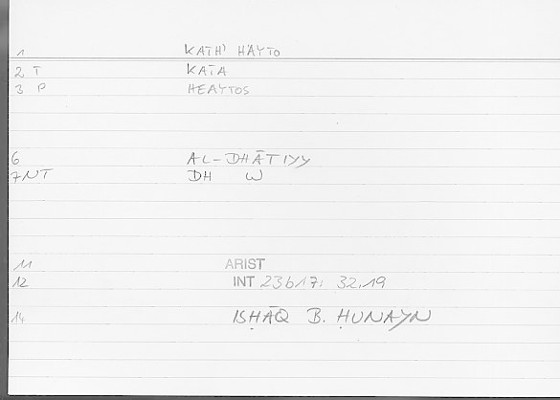 1 KATH' HAYTO
2 T KATA
3 P HEAYTOS
6 AL-DHĀTIYY
7NT DH W
11 ARIST
12 INT 23b17; 32,19
14 ISḤĀQ B. ḤUNAYN